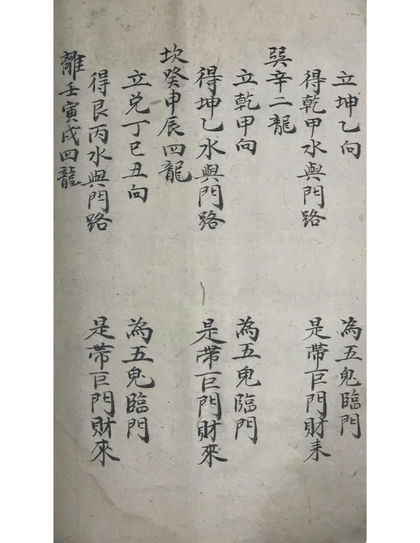 立坤乙向　為五鬼臨門
得乾甲水與門路　是帶巨門財来
巽辛二龍
立乾甲向　為五鬼臨門
得坤乙水與門路　是帶巨門財來
坎癸申辰四龍
立兌丁巳丑向　為五鬼臨門
得艮丙水與門路　是帶巨門財來
離壬寅戌四龍